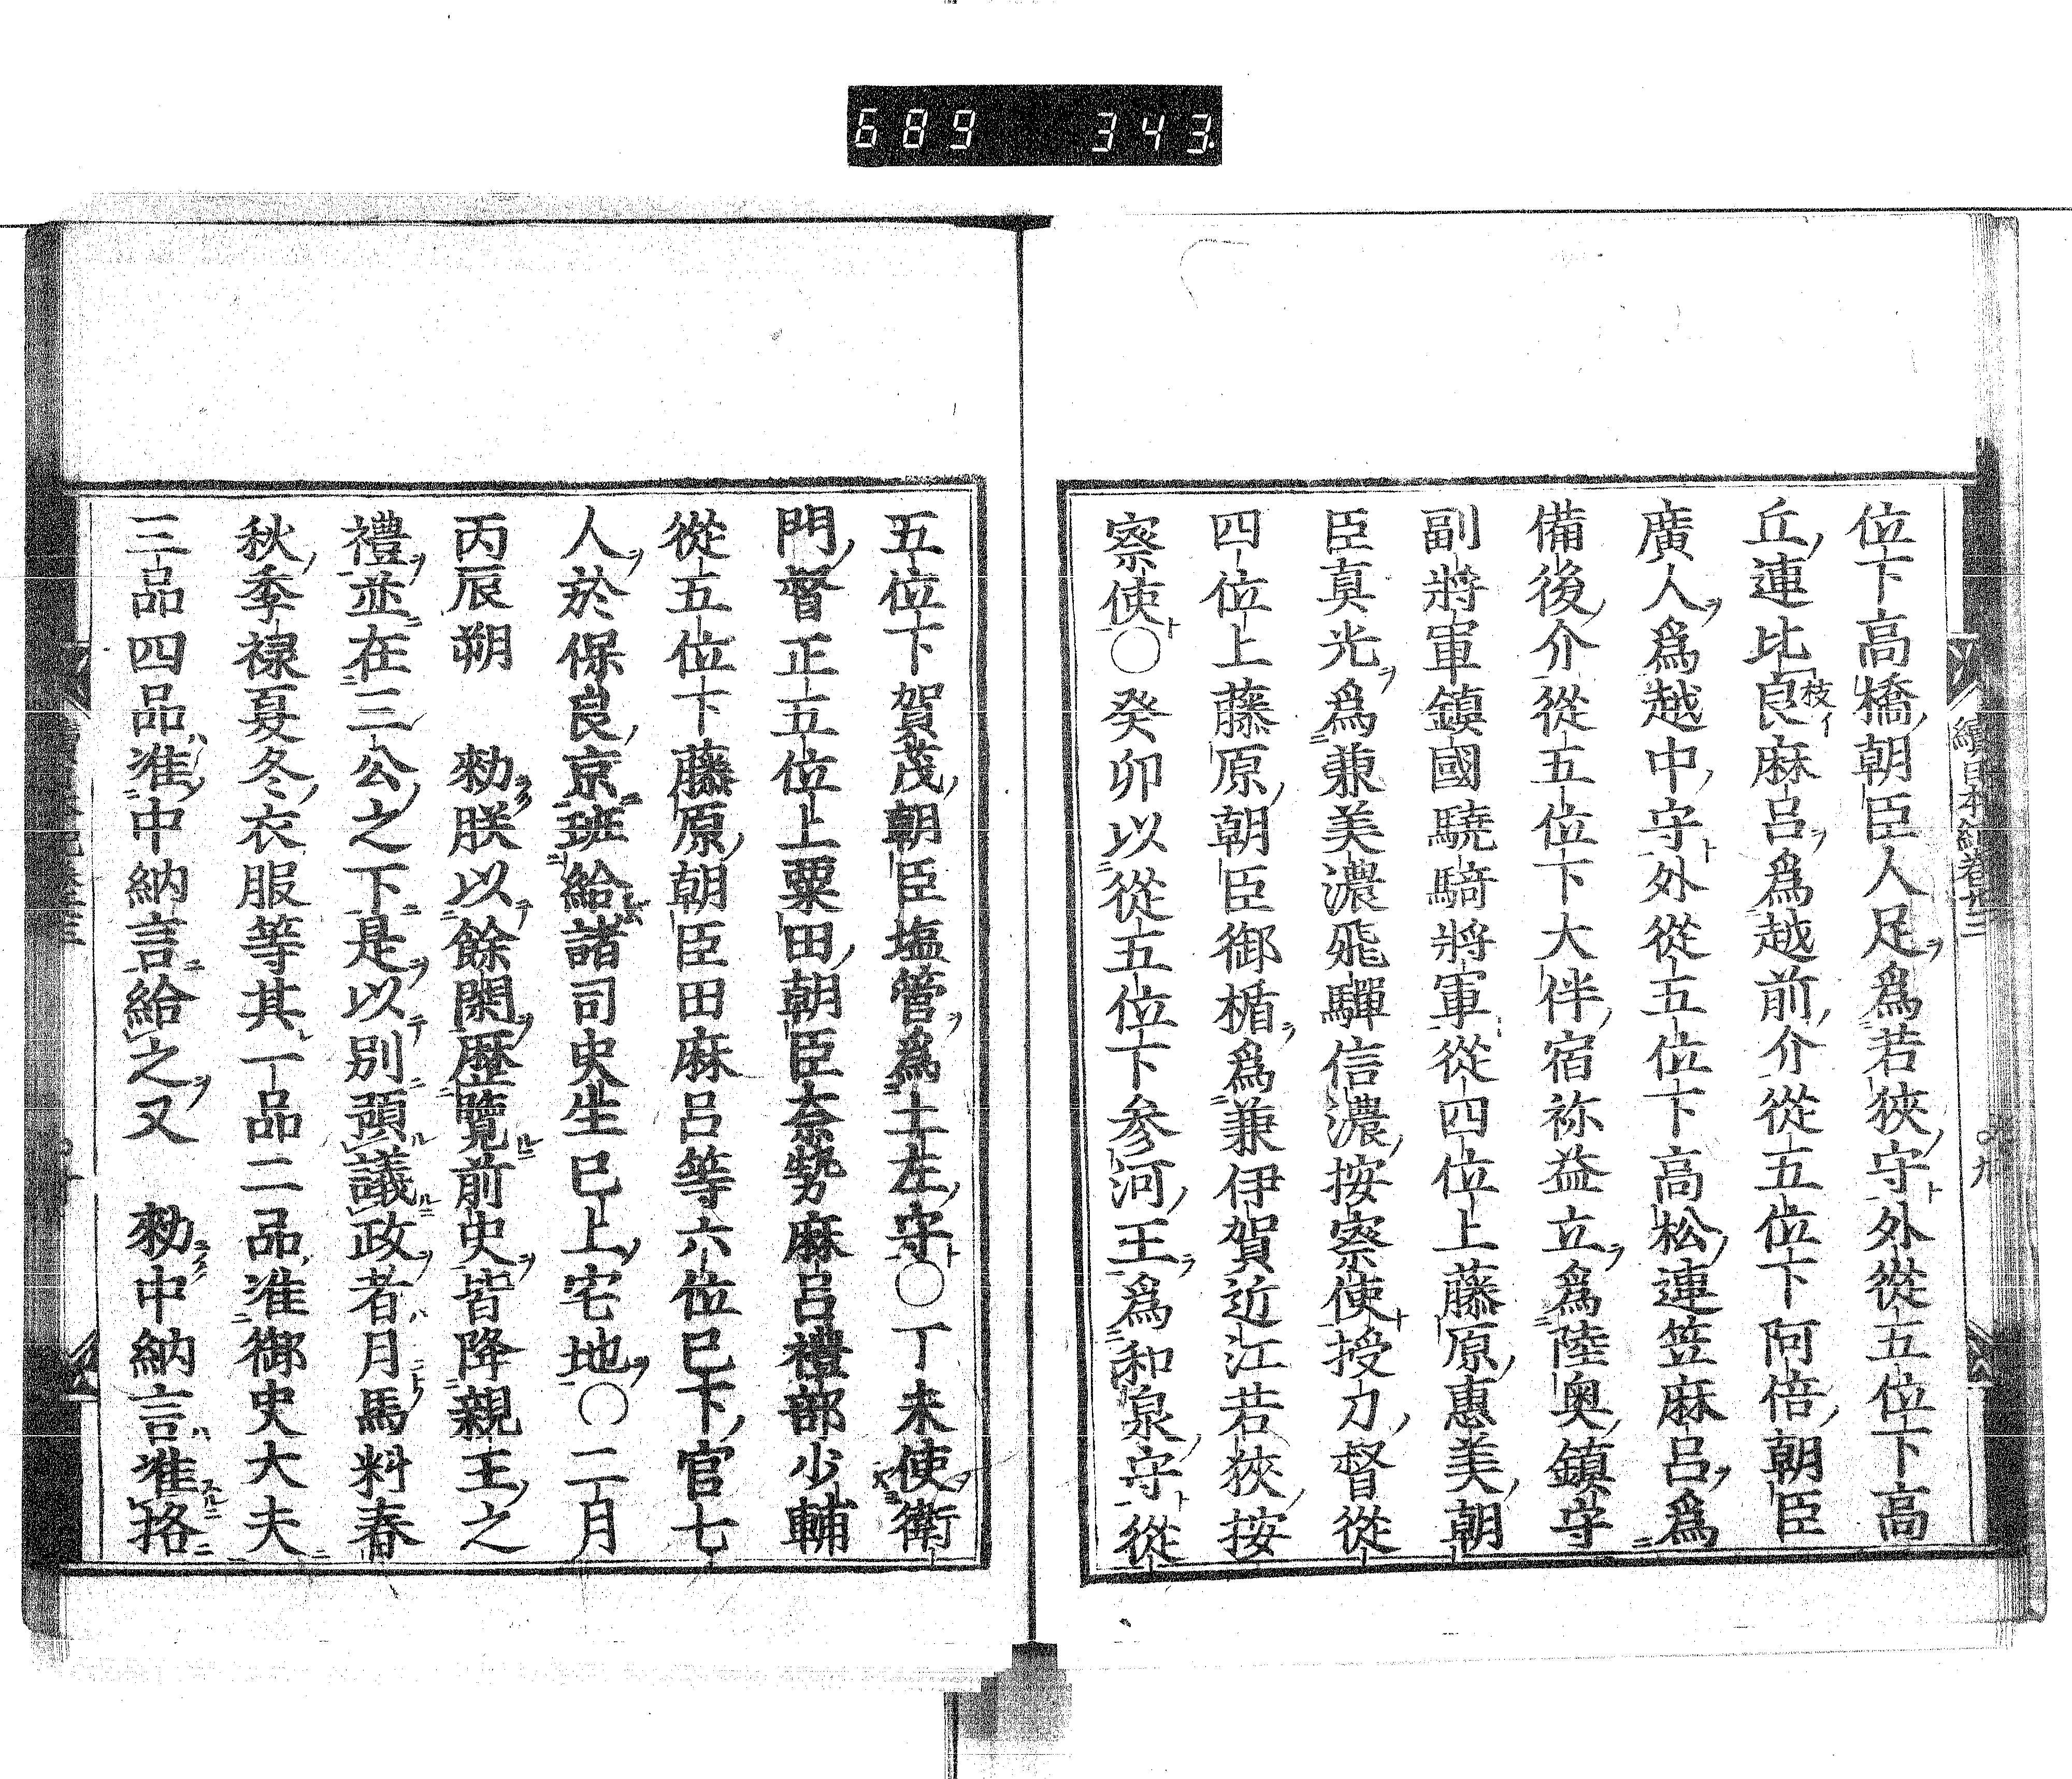 689 343
位下高橋朝臣人足爲若狹守外從五位下高
丘連比良麻呂爲越前介從五位下阿倍朝臣
枝イ
廣人爲越中守外從五位下高松連笠麻呂爲
備後介從五位下大伴宿祢益立爲陸奥鎮守
副將軍鎮國驍騎將軍從四位上藤原惠美朝
臣真光爲兼美濃飛驒信濃按察使授刀督從
四位上藤原朝臣御楯爲兼伊賀近江若狹按
察使〇癸卯以從五位下参河王爲和泉守從
五位下賀茂朝臣塩管爲土左守〇丁未使衛
門督正五位上粟田朝臣奈勢麻呂禮部少輔
從五位下藤原朝臣田麻呂等六位已下官七
人於保良京班給諸司史生已上宅地〇二月
丙辰朔 勅朕以餘閑歴覽前史皆降親王之
禮並在三公之下是以別預議政者月馬料春
秋季禄夏冬衣服等其一品二品准御史大夫
三品四品准中納言給之又 勅中納言准挌
續日本紀巻廿三